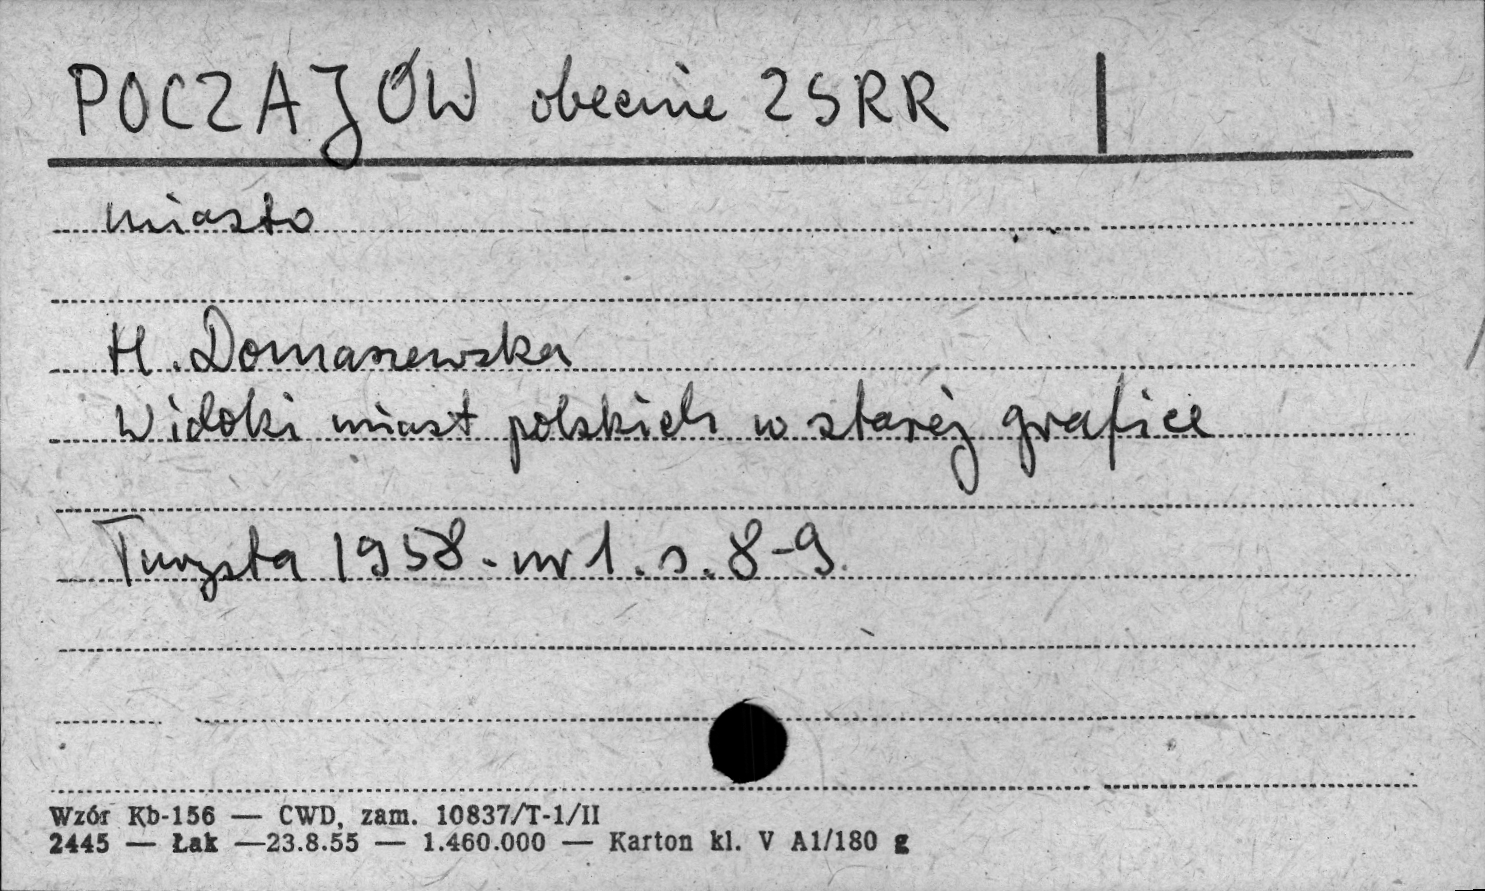 POCZAJÓW obecnie ZSRR
miasto
H. Domaszewska
Widoki miast polskich w starej grafice
Turysta 1958. nr 1. s. 8-9.
Wzór Kb-156 — CWD, zam. 10837/T-1/II
2445 — Łak —23.8.55 — 1.460.000 — Karton kl. V A1/180 g